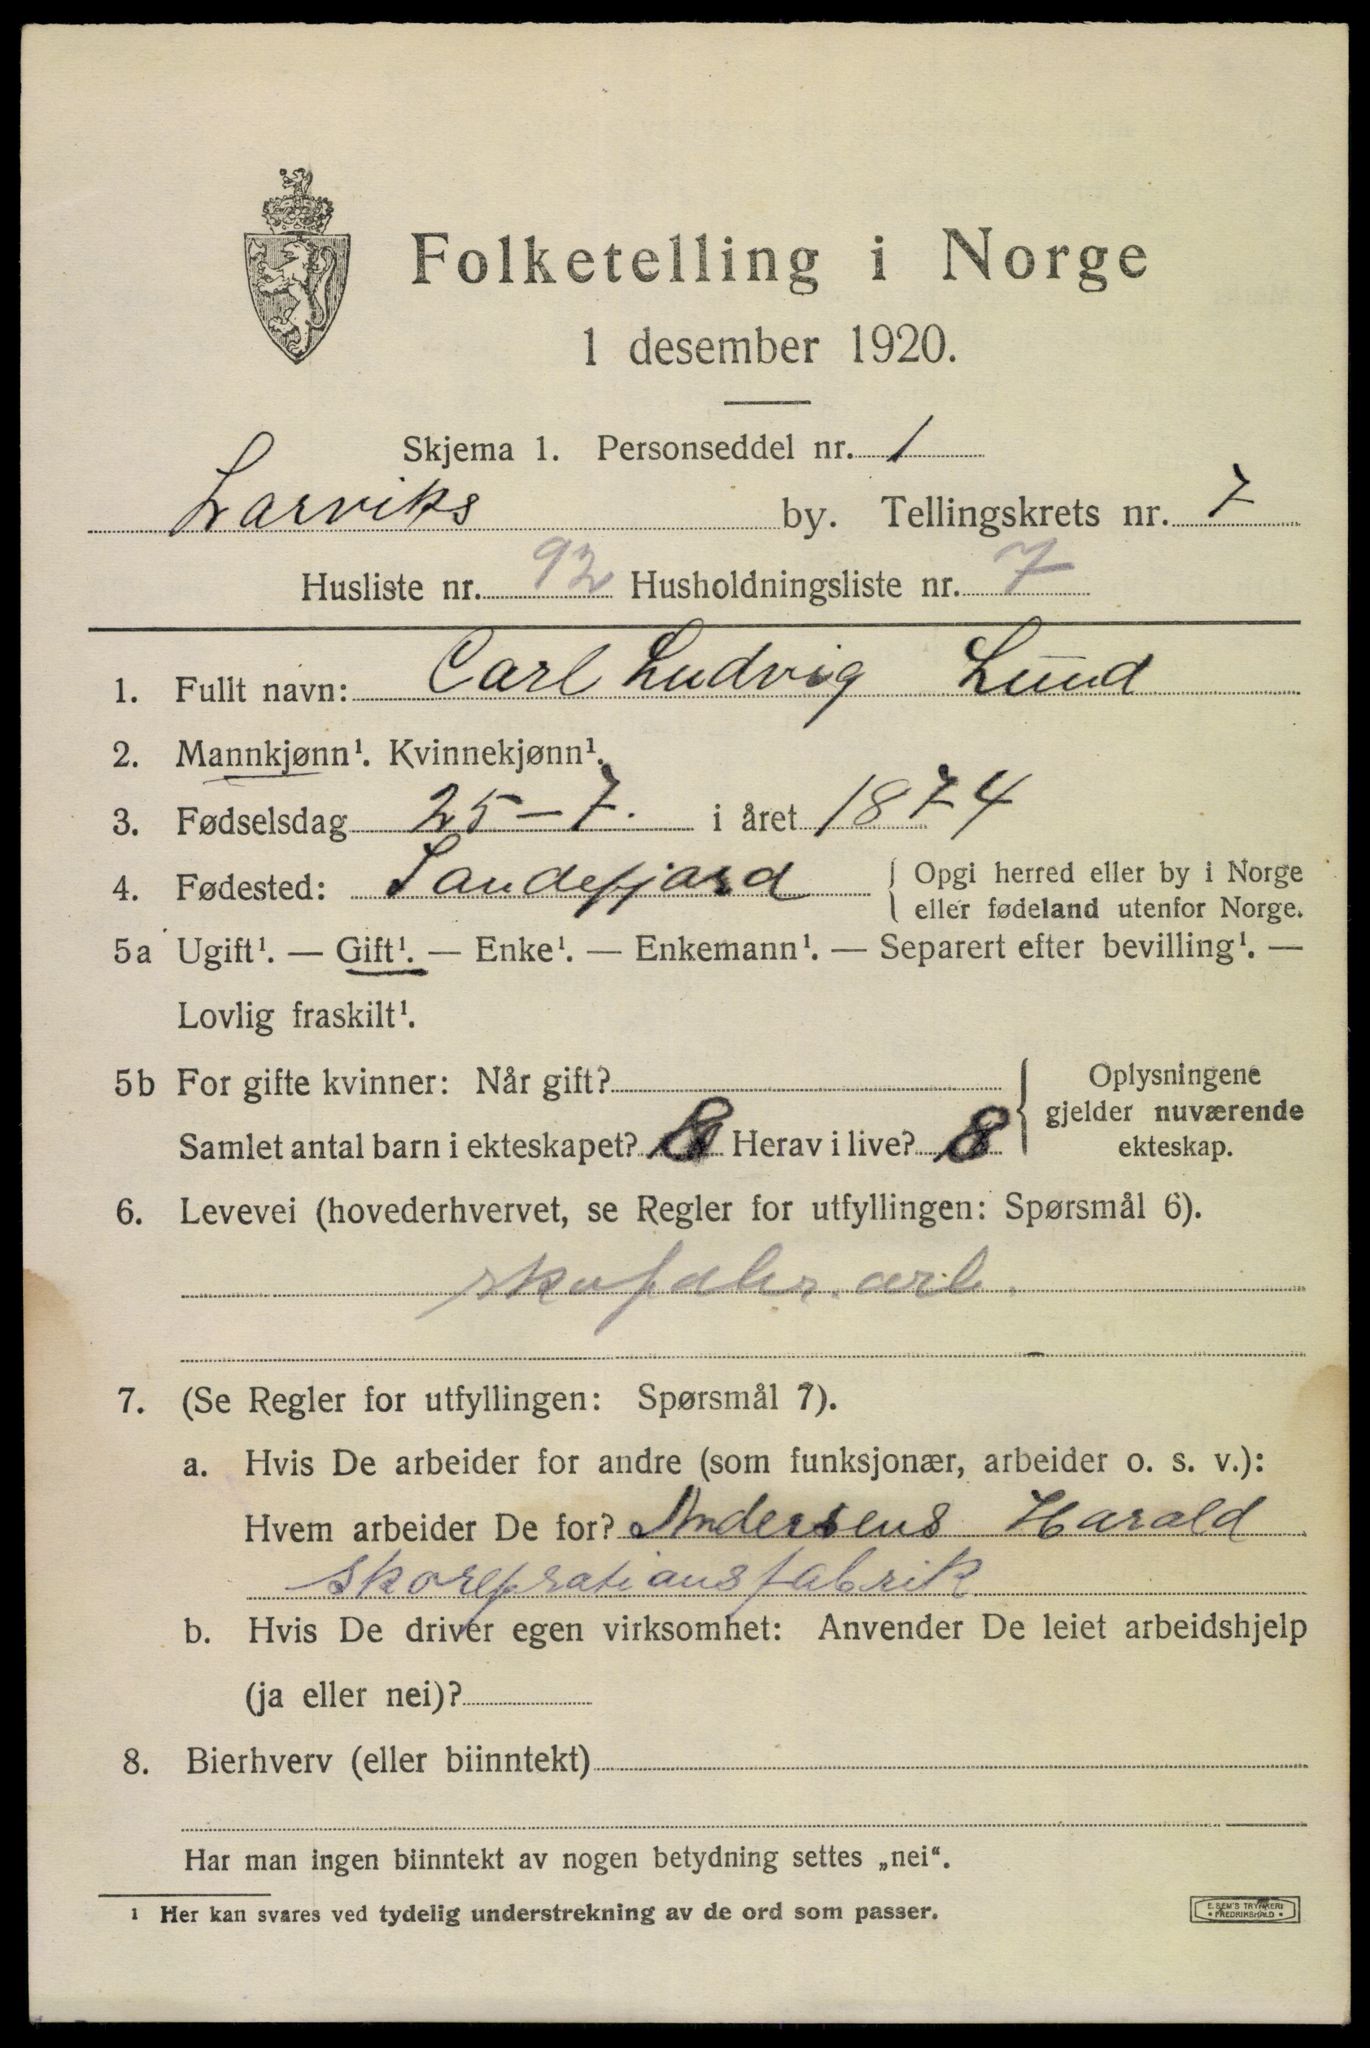 Folketelling i Norge
1 desember 1920.
Skjema 1. Personseddel nr. 1
Larviks by. Tellingskrets nr. 7
Husliste nr. 92 Husholdningsliste nr. 7
1. Fullt navn: Carl Ludvig Lund
2. Mannkjønn¹. Kvinnekjønn¹.
3. Fødselsdag 25-7. i året 1874
4. Fødested: Sandefjord { Opgi herred eller by i Norge
eller fødeland utenfor Norge.
5a Ugift¹. — Gift¹. — Enke¹. — Enkemann¹. — Separert efter bevilling¹. —
Lovlig fraskilt¹.
5b For gifte kvinner: Når gift? { Oplysningene
gjelder nuværende
Samlet antal barn i ekteskapet? 8 Herav i live? 8 ekteskap.
6. Levevei (hovederhvervet, se Regler for utfyllingen: Spørsmål 6).
skofabr. arb.
7. (Se Regler for utfyllingen: Spørsmål 7).
a. Hvis De arbeider for andre (som funksjonær, arbeider o. s. v.):
Hvem arbeider De for? Andersens Harald
skoreprationsfabrik
b. Hvis De driver egen virksomhet: Anvender De leiet arbeidshjelp
(ja eller nei)?
8. Bierhverv (eller biinntekt)
Har man ingen biinntekt av nogen betydning settes „nei".
¹ Her kan svares ved tydelig understrekning av de ord som passer.
E. SEM'S TRYKKERI
• FREDRIKSHALD •